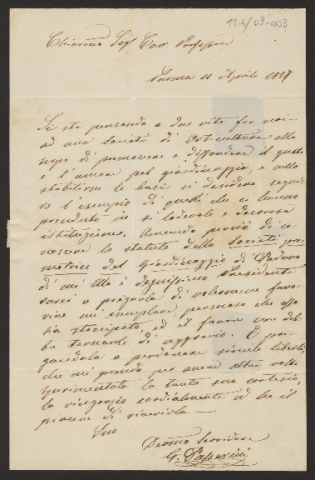 12.4/09-003
Chiarmo Sigr Cav Professore
Parma 11 Aprile 1857
Si sta pensando a dar vita fra noi
ad una Società di Orticultura allo
scopo di promuovere e diffondere il gusto
e l'amore pel giardinaggio, e nello
stabilirne le basi si desidera seguire
l'esempio di quelli che ci hanno
preceduto in sì lodevole e decorosa
istituzione. Amando perciò di co-
noscere lo statuto della Società pro-
motrice del Giardinaggio di Padova
di cui Ella è degnissimo Presidente
sarei a pregarla di volermene favo-
rire un esemplare, persuaso che es-
sia stampato, ed il favore con deb-
ba tornarle di aggravio. E pre-
gandola a perdonare simile libertà,
che mi prendo per avere altre volte
sperimentato la tanta sua cortesia,
la ringrazio cordialmente ed ho il
piacere di riverirla
Suo
Devmo Servidore
G. Passerini